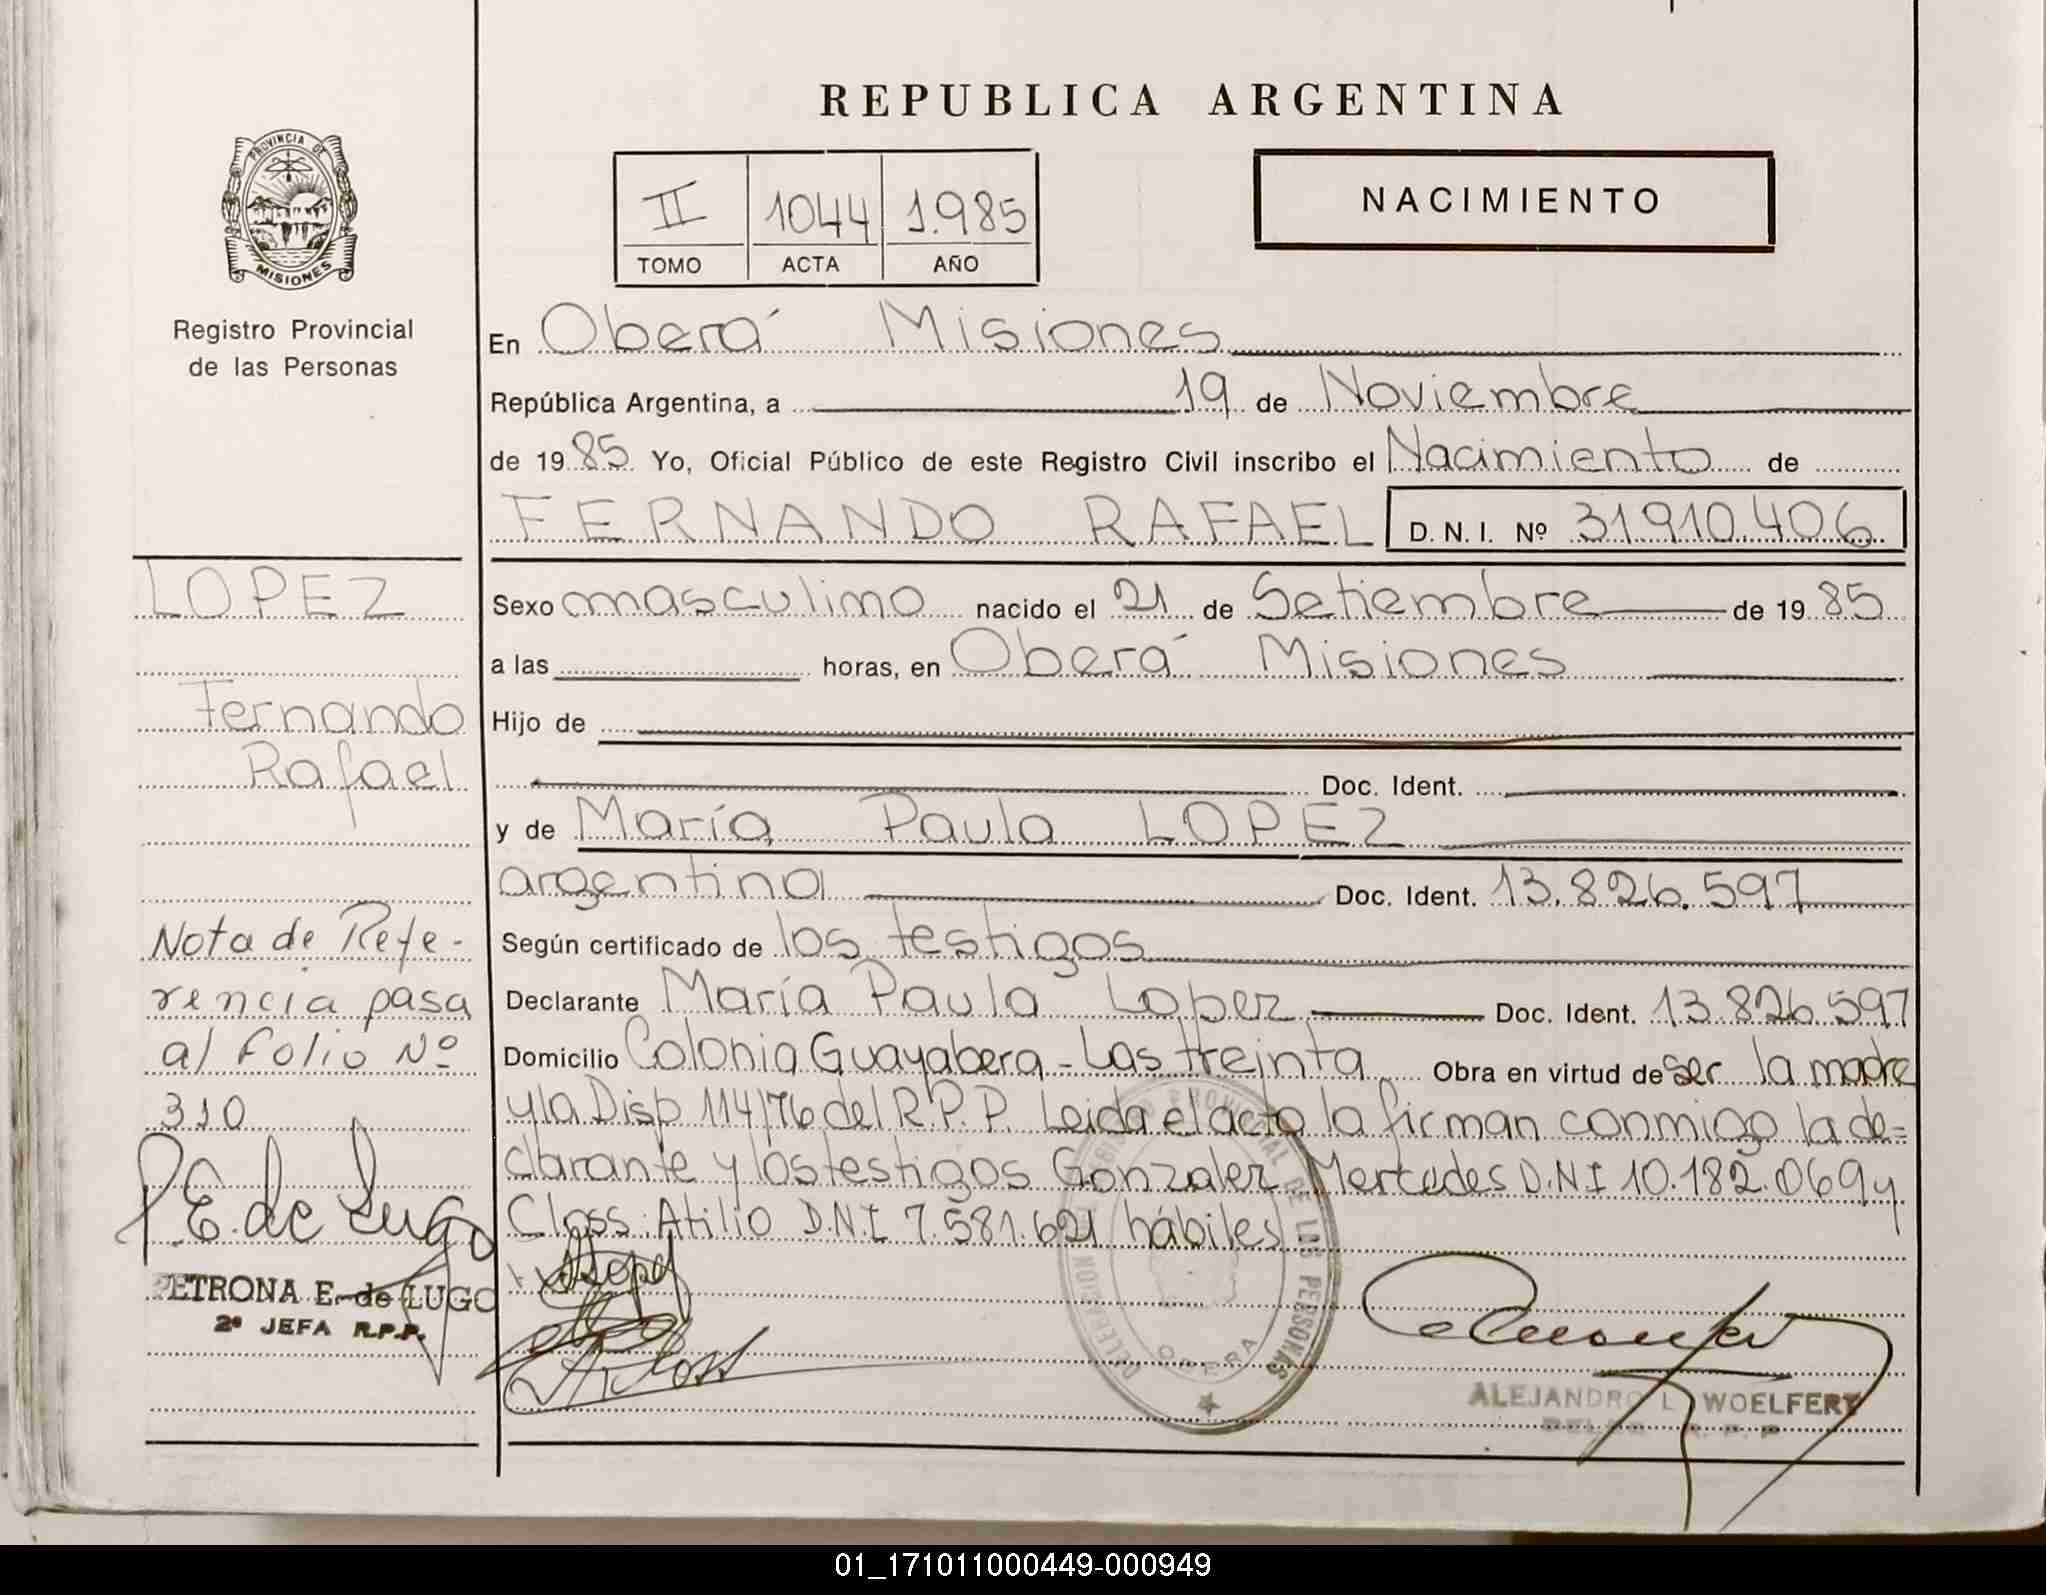 REPUBLICA ARGENTINA
PROVINCIA DE
MISIONES
Registro Provincial
de las Personas
II 1044 1.985
TOMO ACTA AÑO
NACIMIENTO
En Oberá Misiones
República Argentina, a 19 de Noviembre
de 1985 Yo, Oficial Público de este Registro Civil inscribo el Nacimiento de
FERNANDO RAFAEL D.N.I. Nº 31.910.406
Sexo masculino nacido el 21 de Setiembre de 1985
a las horas, en Oberá Misiones
Hijo de
Doc. Ident.
y de María Paula LOPEZ
argentina Doc. Ident. 13.826.597
Según certificado de los testigos
Declarante María Paula Lopez Doc. Ident. 13.826.597
Domicilio Colonia Guayabera - Las treinta Obra en virtud de ser la madre
y la Disp 114/76 del R.P.P. Leida el acta la firman conmigo la de-
clarante y los testigos Gonzalez Mercedes D.N.I 10.182.069 y
Closs Atilio D.N.I 7.581.621 hábiles
LOPEZ
Fernando
Rafael
Nota de Refe-
rencia pasa
al folio Nº
310
P.E. de Lugo
PETRONA E. de LUGO
2ª JEFA R.P.P.
DE LAS PERSONAS
OBERA
ALEJANDRO L. WOELFERT
01_171011000449-000949